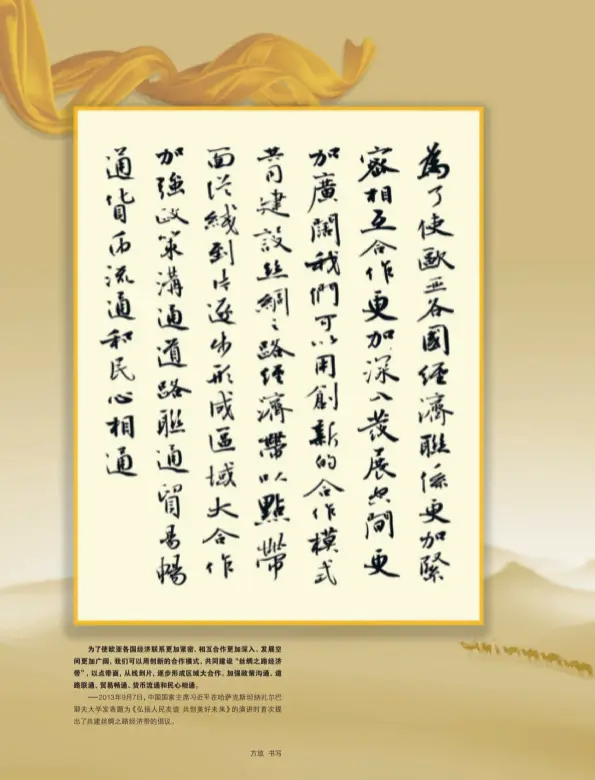 為了使歐亞各國經濟聯係更加緊
密相互合作更加深入發展空間更
加廣闊我們可以用創新的合作模式
共同建設丝綢之路經濟帶以點帶
面從綫到片逐步形成區域大合作
加強政策溝通道路聯通貿易暢
通貨币流通和民心相通
为了使欧亚各国经济联系更加紧密、相互合作更加深入、发展空
间更加广阔，我们可以用创新的合作模式，共同建设“丝绸之路经济
带”，以点带面，从线到片，逐步形成区域大合作。加强政策沟通、道
路联通、贸易畅通、货币流通和民心相通。
——2013年9月7日，中国国家主席习近平在哈萨克斯坦纳扎尔巴
耶夫大学发表题为《弘扬人民友谊 共创美好未来》的演讲时首次提
出了共建丝绸之路经济带的倡议。
方放 书写